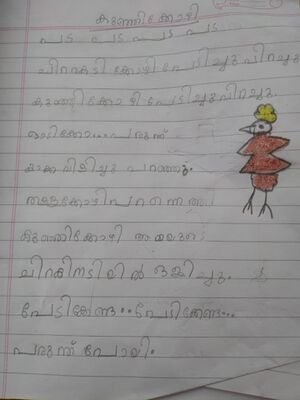 കുഞ്ഞിക്കോഴി
പട പട പട പട
ചിറകടി കോഴി പേടിച്ചു വിറച്ചു
കുഞ്ഞിക്കോഴി പേടിച്ചു വിറച്ചു.
ഓടിക്കോ... പരുന്ത്
കാക്ക വിളിച്ചു പറഞ്ഞു.
തള്ളക്കോഴി പറന്നെത്തി
കുഞ്ഞിക്കോഴി അമ്മയുടെ
ചിറകിനടിയിൽ ഒളിച്ചു.
പേടിക്കേണ്ട.. പേടിക്കേണ്ട..
പരുന്ത് പോയി.